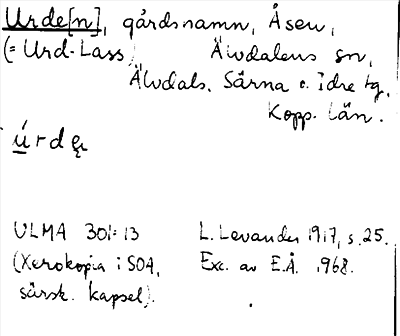 Urde[n], gårdsnamn, Åsen,
(= Urd-Lass) Älvdalens sn,
Älvdals, Särna o. Idre tg,
Kopp. län.
úrdę
ULMA 301:13 L. Levander 1917, s. 25.
(Xerokopia i SOA, Exc. av E.Å. 1968.
särsk. kapsel).